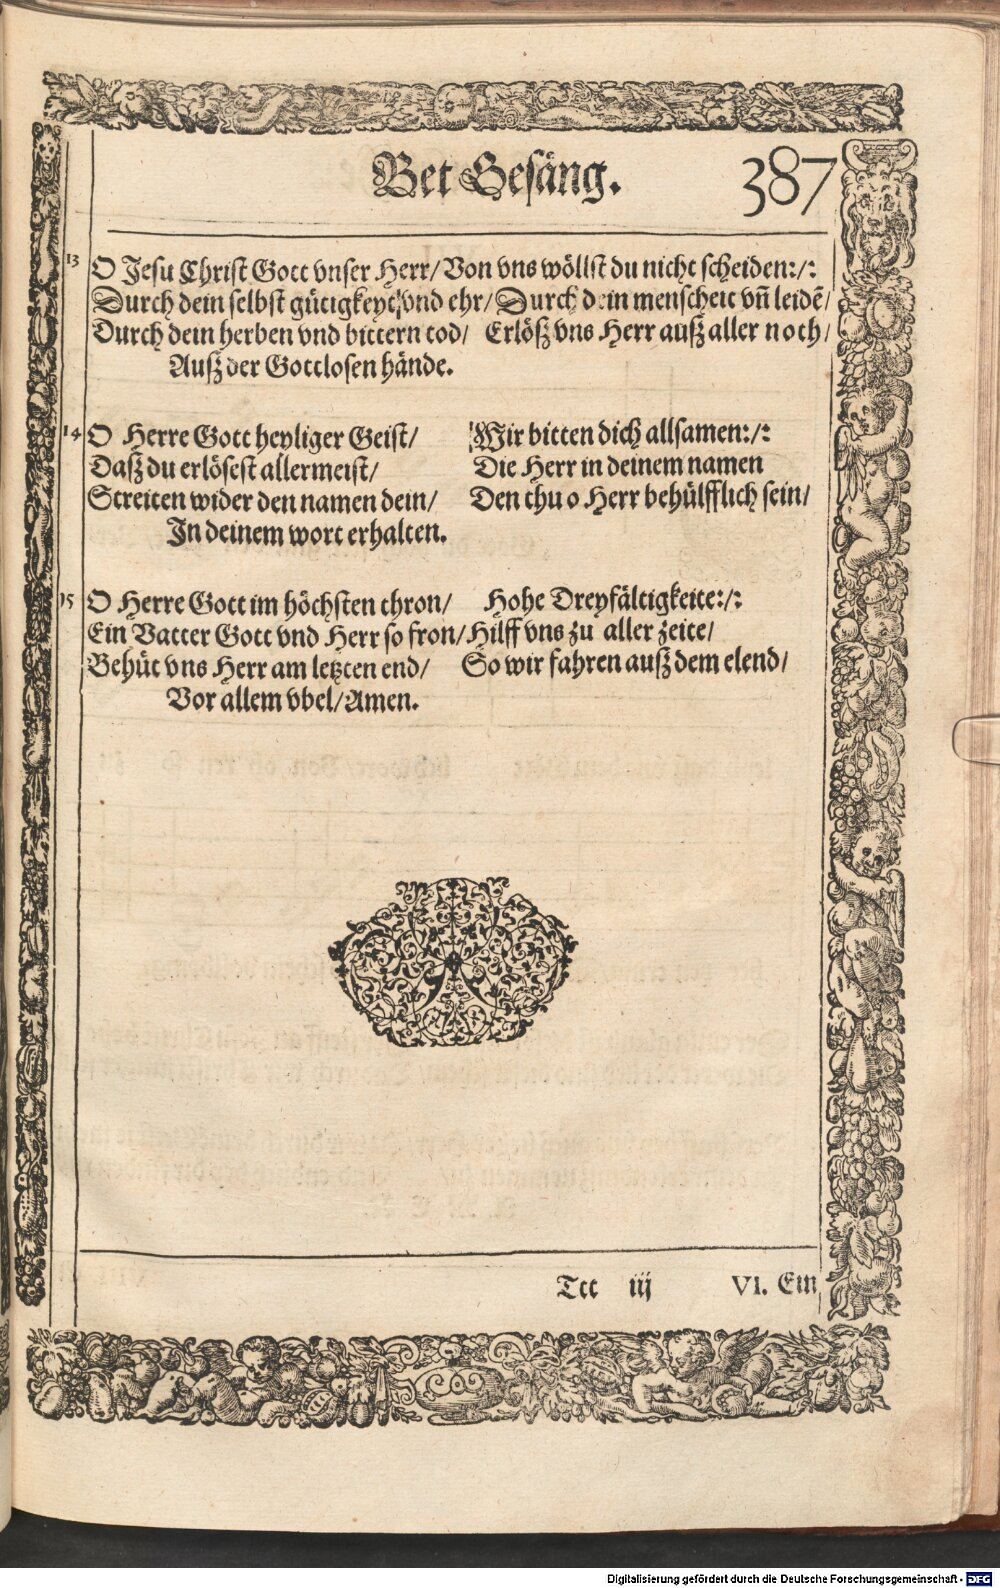 Bet Gesäng. 387
13 O Jesu Christ Gott vnser Herr/ Von vns wöllst du nicht scheiden:/:
Durch dein selbst gütigkeyt/vnd ehr/ Durch dein menscheit vñ leidẽ/
Durch dein herben vnd bittern tod/ Erlöß vns Herr auß aller noth/
Auß der Gottlosen hände.
14 O Herre Gott heyliger Geist/ Wir bitten dich allsamen:/:
Daß du erlösest allermeist/ Die Herr in deinem namen
Streiten wider den namen dein/ Den thu o Herr behülfflich sein/
In deinem wort erhalten.
15 O Herre Gott im höchsten thron/ Hohe Dreyfältigkeite:/:
Ein Vatter Gott vnd Herr so fron/ Hilff vns zu aller zeite/
Behüt vns Herr am letzten end/ So wir fahren auß dem elend/
Vor allem vbel/ Amen.
Ttt iij VI. Ein
Digitalisierung gefördert durch die Deutsche Forschungsgemeinschaft - DFG